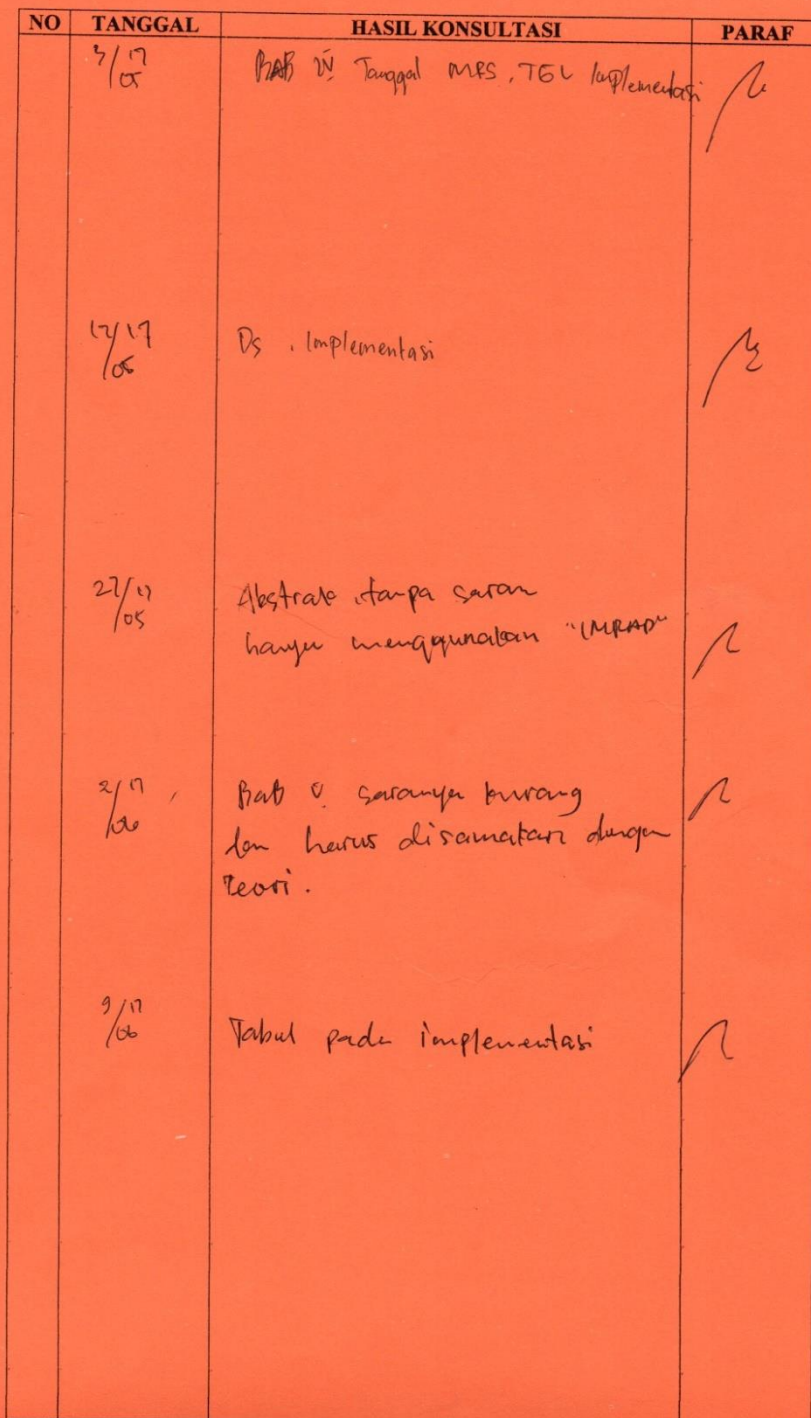 NO TANGGAL HASIL KONSULTASI PARAF
3/17 BAB IV Tanggal MRS, TGL Implementasi
/05
12/17 Ds. Implementasi
/05
27/17 Abstrak, tanpa saran
/05 hanya menggunakan "IMRAD"
2/17 Bab V sarannya kurang
/06 dan harus disamakan dengan
Teori.
9/17 Tabel pada implementasi
/06